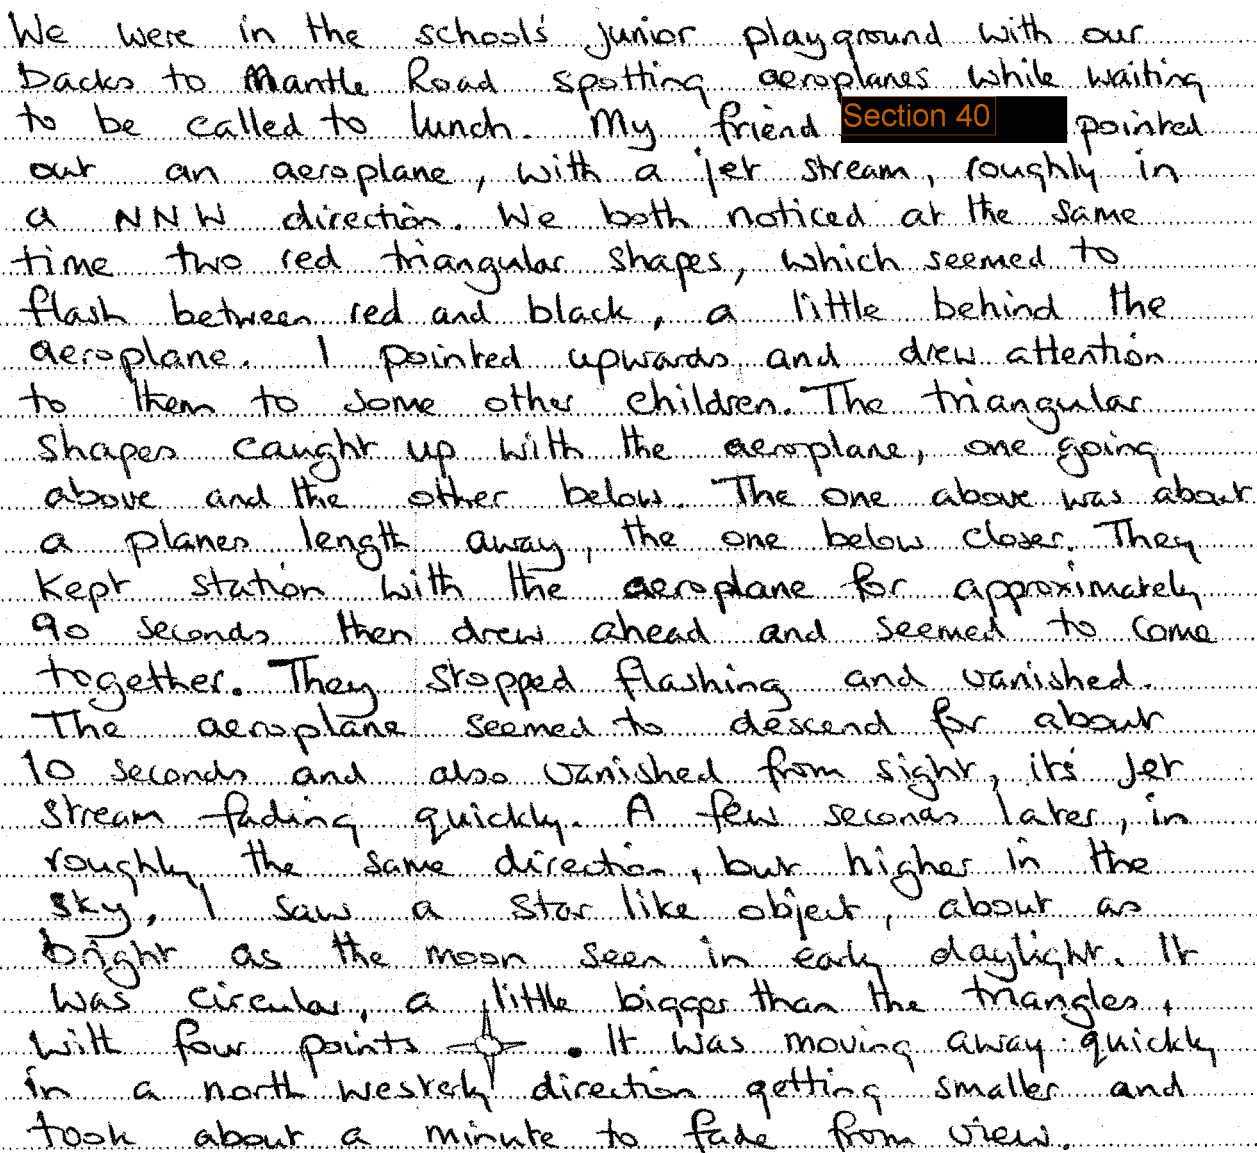 We were in the schools' junior playground with our
backs to Mantle Road spotting aeroplanes while waiting
to be called to lunch. My friend Section 40 pointed
out an aeroplane, with a jet stream, roughly in
a NNW direction. We both noticed at the same
time two red triangular shapes, which seemed to
flash between red and black, a little behind the
aeroplane. I pointed upwards and drew attention
to them to some other children. The triangular
shapes caught up with the aeroplane, one going
above and the other below. The one above was about
a planes length away, the one below closer. They
kept station with the aeroplane for approximately
90 seconds then drew ahead and seemed to come
together. They stopped flashing and vanished.
The aeroplane seemed to descend for about
10 seconds and also vanished from sight, its' jet
stream fading quickly. A few seconds later, in
roughly the same direction, but higher in the
sky, I saw a star like object, about as
bright as the moon seen in early daylight. It
was circular, a little bigger than the triangles,
with four points . It was moving away quickly
in a north westerly direction getting smaller and
took about a minute to fade from view.